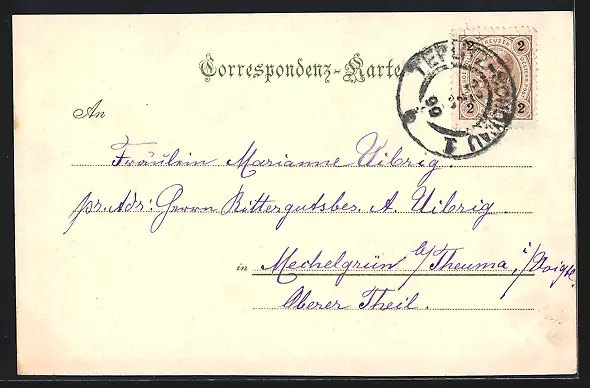 Correspondenz-Karte
2 KREUZER 2
TEPLITZ-SCHÖNAU 1
99
2 2
An
Fräulein Marianne Uibrig.
pr. Adr: Herrn Rittergutsbes. A. Uibrig.
in Mechelgrün b/Theuma, i/Voigtl.
Oberer Theil.